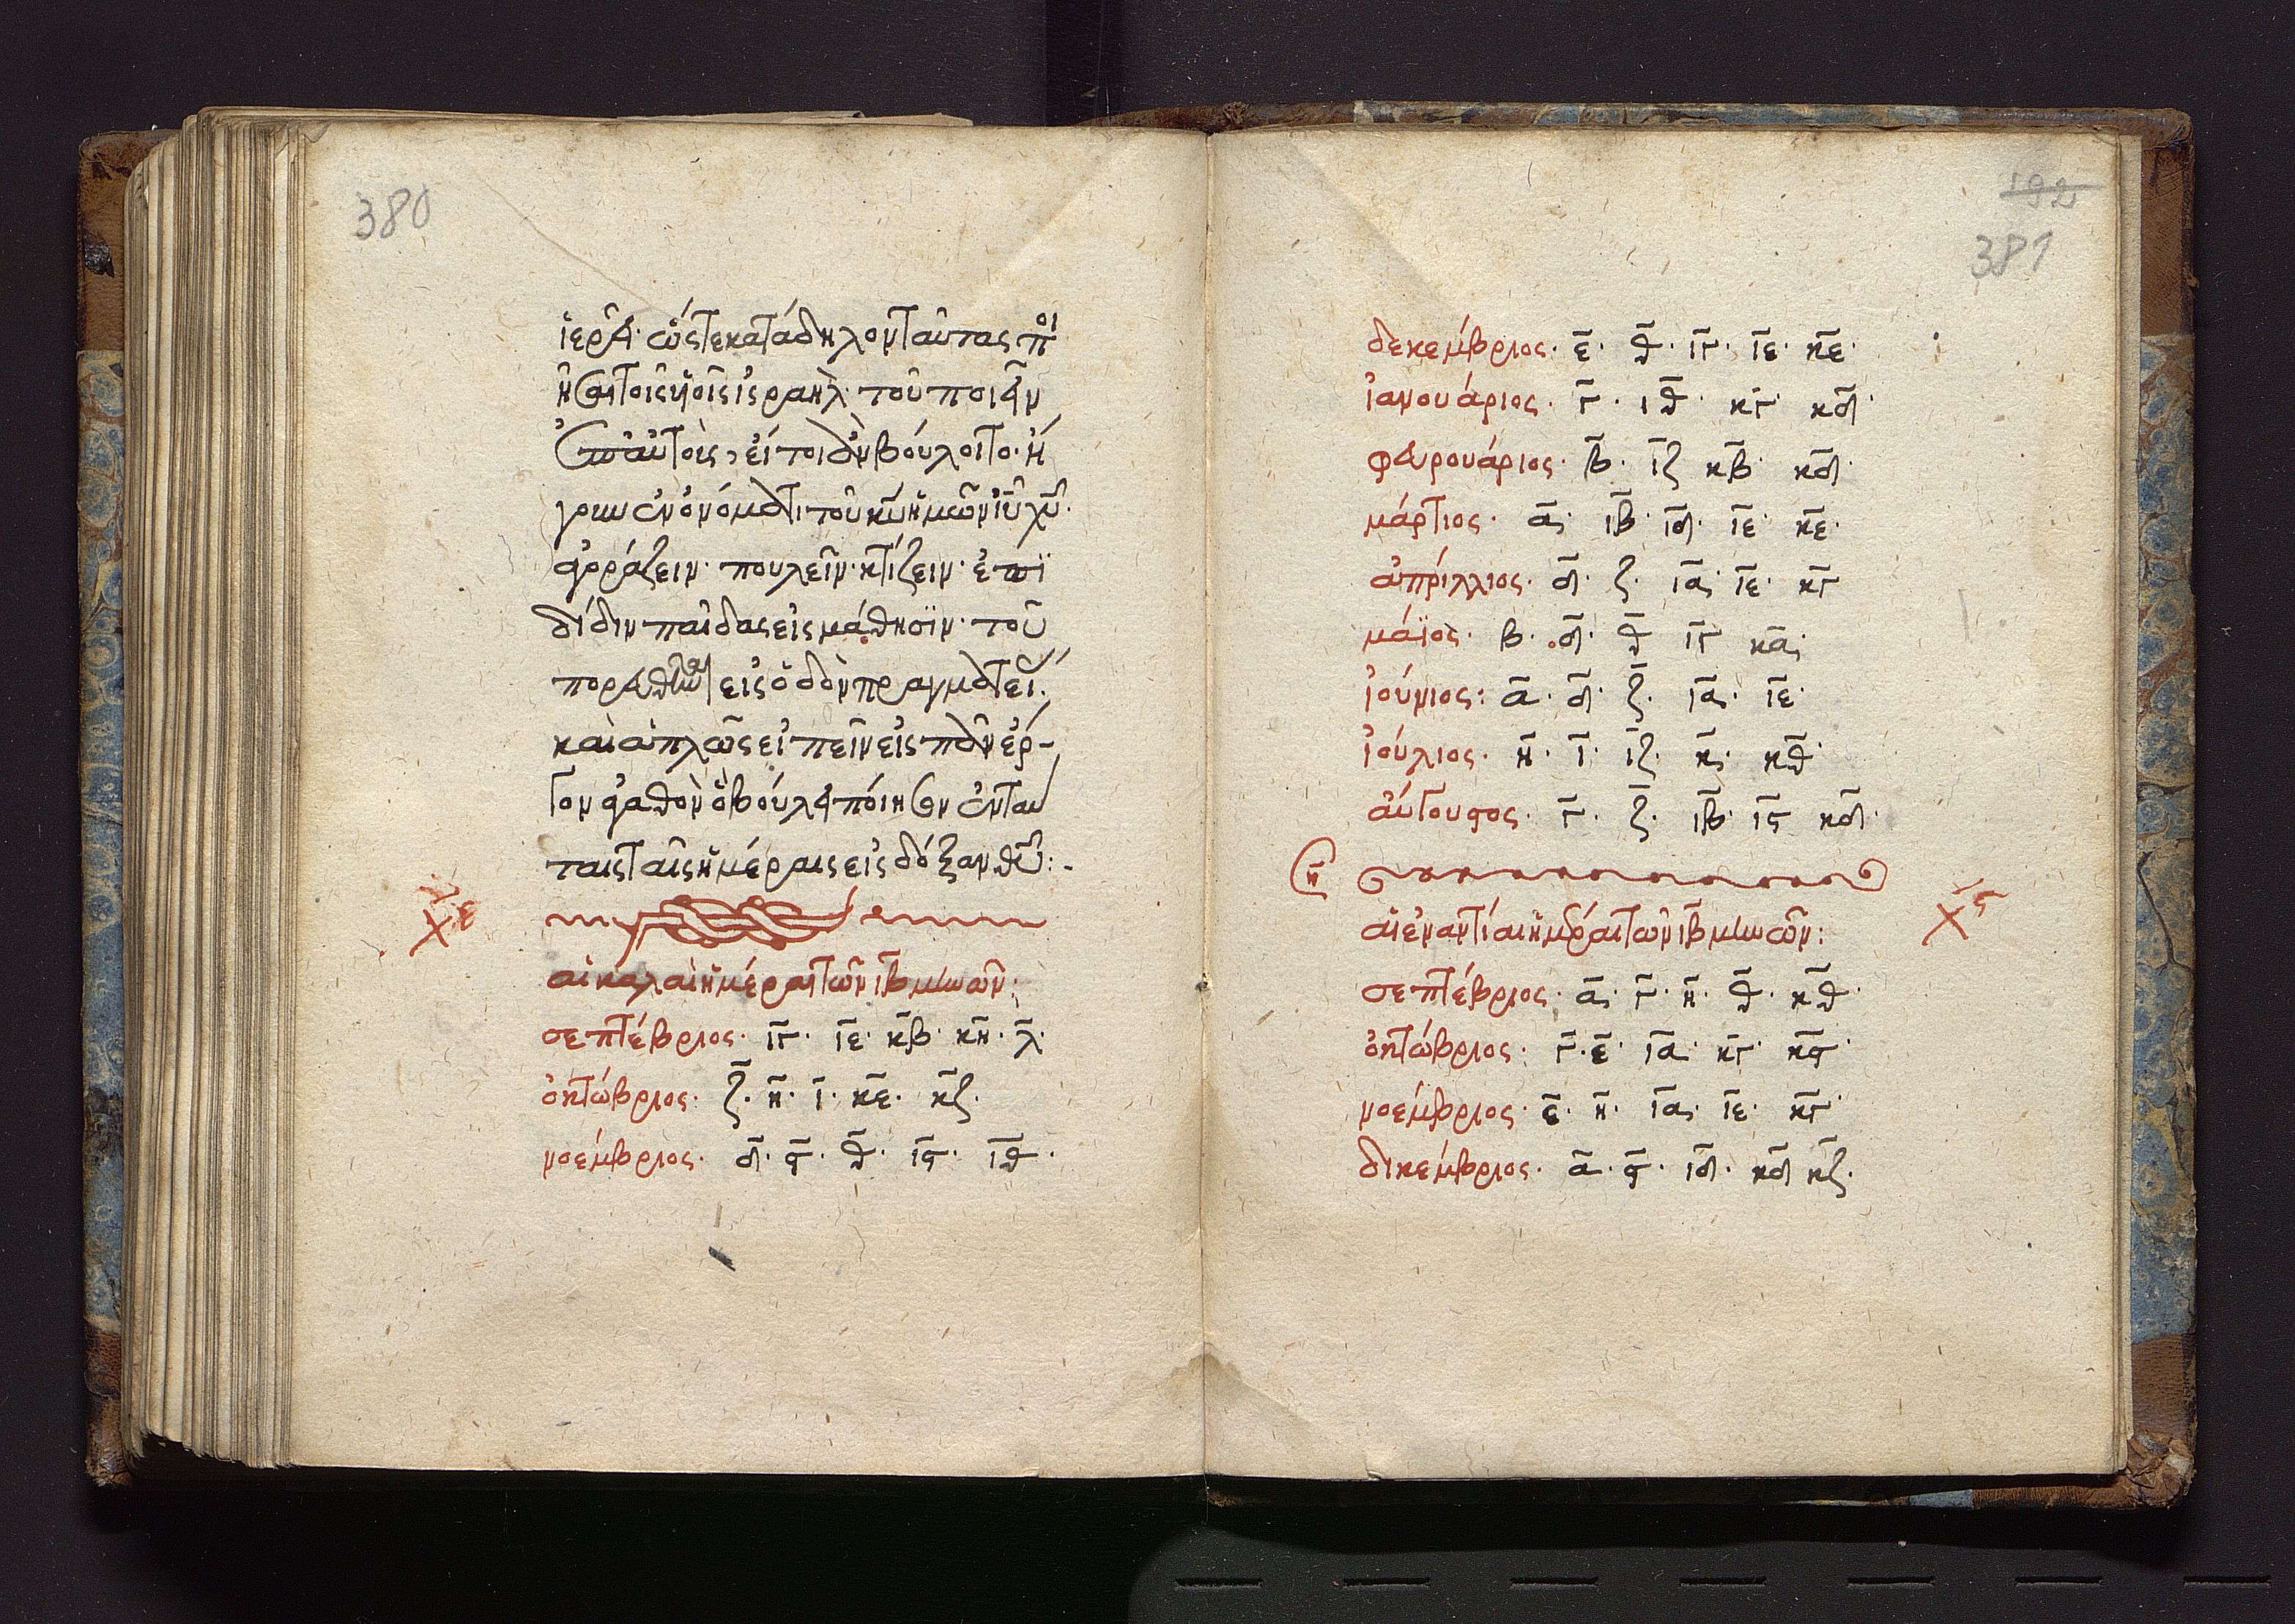 380
ἱερεῖ· ὥστε κατάδηλον ταύτας π οι
ῆσαι τοῖς υἱοῖς ἰσραὴλ· τοῦ ποιεῖν
ἐπ αὐτοῖς, εἴ τι ἂν βούλοιτο· ἢ
γουν ἐν ὀνόματι τοῦ κῡ ἡμῶν ῑῡ χῡ·
ἀγοράζειν· πουλεῖν· κτίζειν·
διδειν παῖδας εἰς μάθησϊν· τοῦ
εἰς ὁδὸν πραγματεί
καὶ ἁπλῶς εἰπεῖν εἰς πᾶν ἔρ-
γον ἀγαθὸν ὃ βούλει ποίησον ἐν ταύ
ταις ταῖς ἡμέραις εἰς δόξαν θῡ:-
Χε
αἱ καλαὶ ἡμέραι τῶν ιβ μηνῶν:
σεπτέβριος· ιγ· ιε· κβ· κη· λ·
ὀκτώβριος· ζ· η· ι· κε· κζ·
νοέμβριος· δ· ϛ· θ· ιϛ· ιθ·
192
381
δεκέμβριος· ε· θ· ιγ· ιε· κε·
ἰανουάριος· γ· ιθ· κγ· κδ·
φευρουάριος· β· ιζ κβ· κδ·
μάρτιος· α· ιβ· ιδ· ιε· κε·
ἀπρίλλιος· δ· ζ· ια· ιε· κγ
μάϊος· β· δ· θ ιγ κα·
ἰούνιος: α· δ· ζ· ια· ιε·
ἰούλιος· η· ι· ιζ· κ· κθ·
αὔγουστος· γ· ζ· ιβ· ιϛ κδ·
η
αἱ ἐναντίαι ἡμέραι τῶν ιβ μηνῶν:
Χϛ
σεπτέβριος· α· γ· η· θ· κθ·
ὀκτώβριος· γ· ε· ια· κγ· κϛ·
νοέμβριος· ε· η· ια· ιε· κγ·
δικέμβριος· α· ϛ· ιδ· κδ κζ·